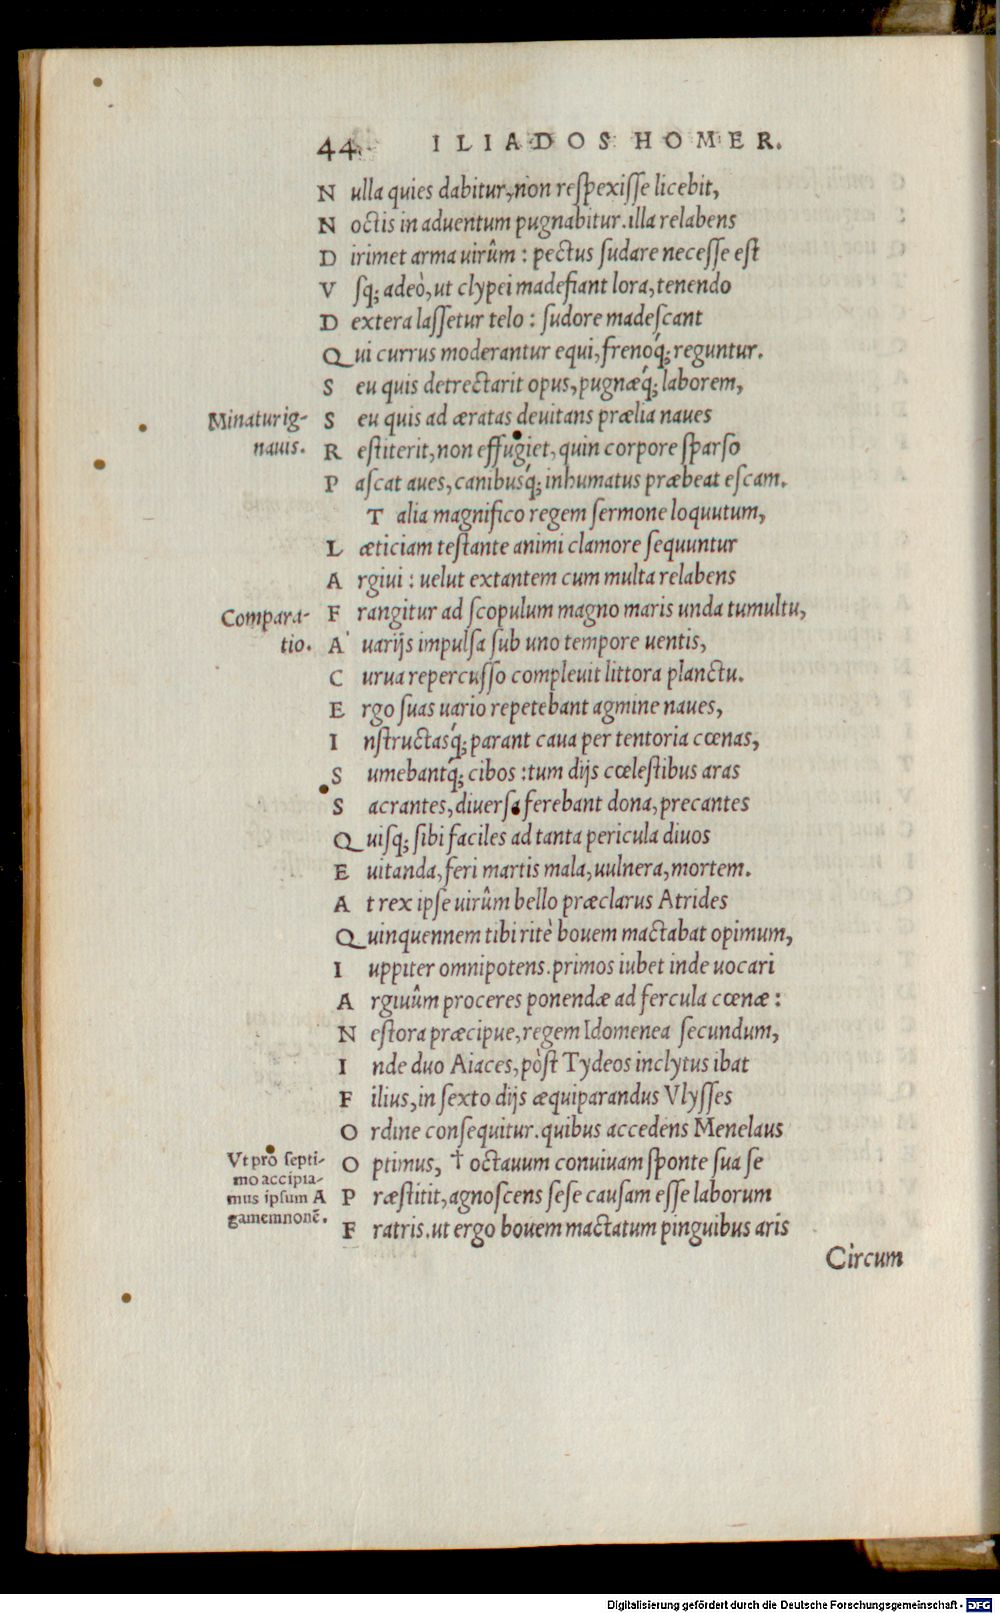 44 ILIADOS HOMER.
Nulla quies dabitur, non respexisse licebit,
Noctis in aduentum pugnabitur. illa relabens
Dirimet arma uirûm : pectus sudare necesse est
Vsq; adeò, ut clypei madefiant lora, tenendo
Dextera lassetur telo : sudore madescant
Qui currus moderantur equi, frenoq́; reguntur.
Seu quis detrectarit opus, pugnæq́; laborem,
Minatur ig-
nauis.
Seu quis ad æratas deuitans prælia naues
Restiterit, non effugiet, quin corpore sparso
Pascat aues, canibusq́; inhumatus præbeat escam.
Talia magnifico regem sermone loquutum,
Læticiam testante animi clamore sequuntur
Argiui : uelut extantem cum multa relabens
Compara-
tio.
Frangitur ad scopulum magno maris unda tumultu,
A' uarijs impulsa sub uno tempore uentis,
Curua repercusso compleuit littora planctu.
Ergo suas uario repetebant agmine naues,
Instructasq́; parant caua per tentoria cœnas,
Sumebantq́; cibos : tum dijs cœlestibus aras
Sacrantes, diuersa ferebant dona, precantes
Quisq; sibi faciles ad tanta pericula diuos
Euitanda, feri martis mala, uulnera, mortem.
At rex ipse uirûm bello præclarus Atrides
Quinquennem tibi ritè bouem mactabat opimum,
Iuppiter omnipotens. primos iubet inde uocari
Argiuûm proceres ponendæ ad fercula cœnæ :
Nestora præcipue, regem Idomenea secundum,
Inde duo Aiaces, pòst Tydeos inclytus ibat
Filius, in sexto dijs æquiparandus Vlysses
Ordine consequitur. quibus accedens Menelaus
Vt pro septi-
mo accipia-
mus ipsum A
gamemnonē.
Optimus, † octauum conuiuam sponte sua se
Præstitit, agnoscens sese causam esse laborum
Fratris. ut ergo bouem mactatum pinguibus aris
Circum
Digitalisierung gefördert durch die Deutsche Forschungsgemeinschaft - DFG